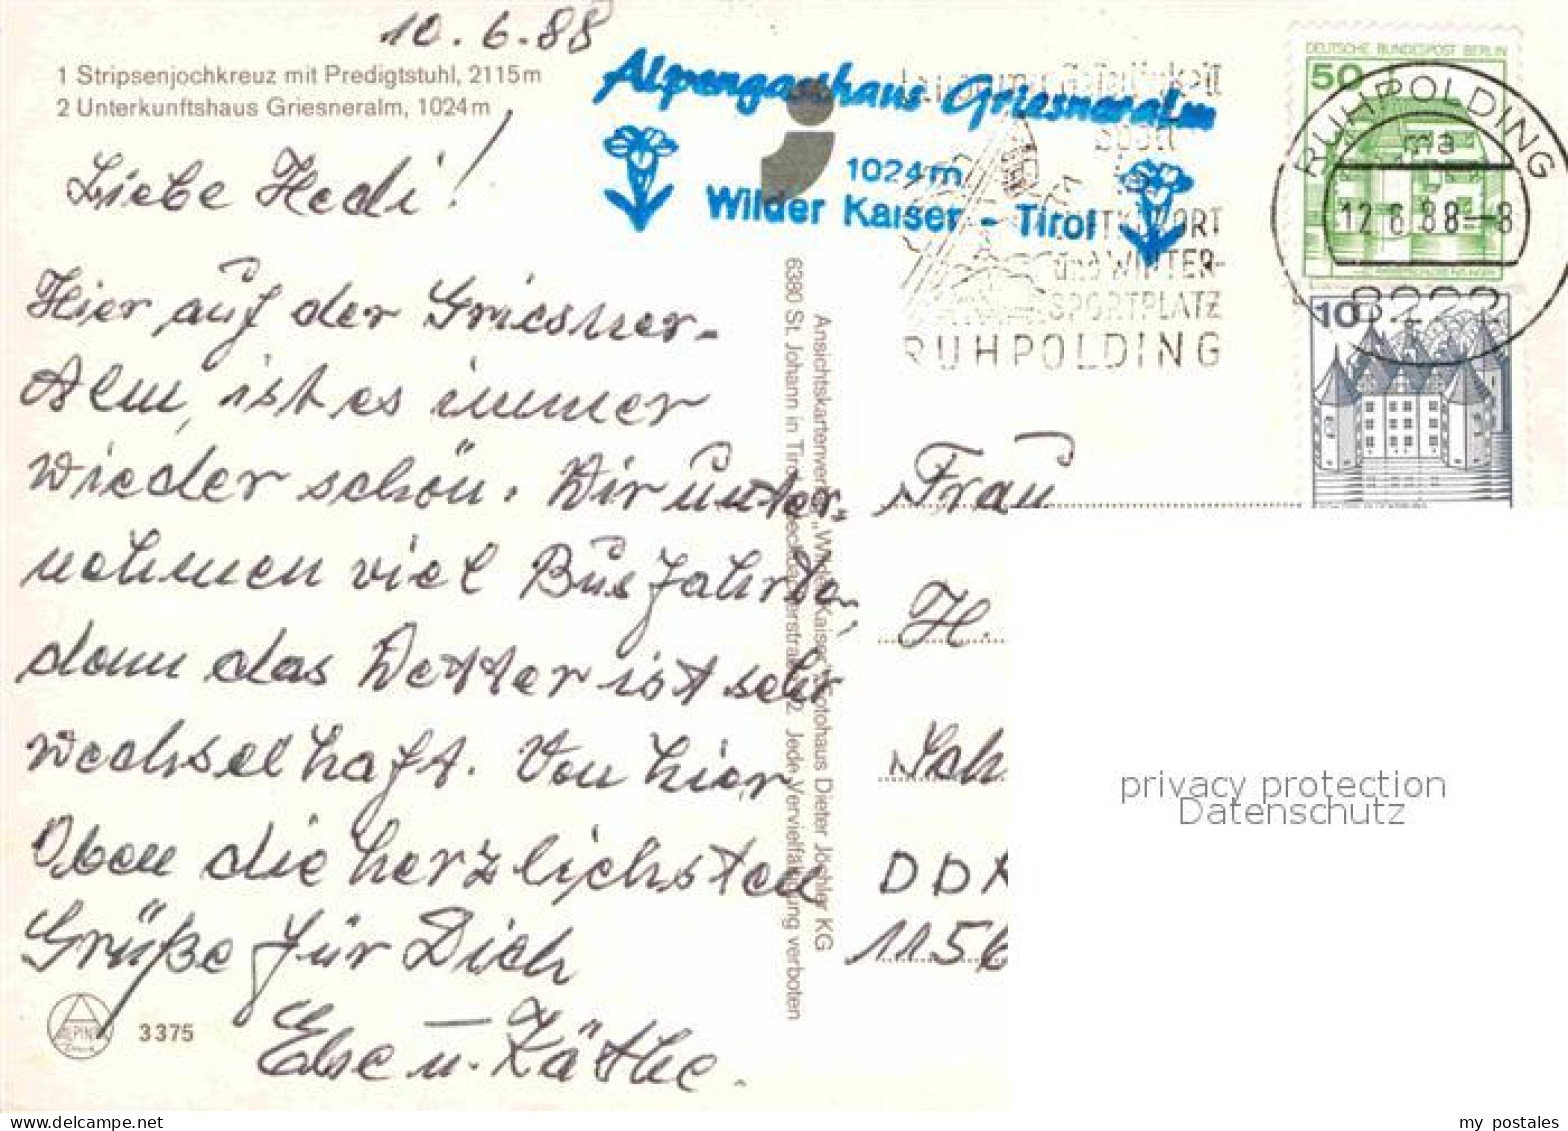 10.6.88
1 Stripsenjochkreuz mit Predigtstuhl, 2115m
2 Unterkunftshaus Griesneralm, 1024m
Alpengasthaus Griesneralm
1024m
Wilder Kaiser - Tirol
Liebe Hedi!
Hier auf der Griesner-
Alm, ist es immer
wieder schön. Wir unter-
nehmen viel Bus fahrten,
denn das Wetter ist sehr
wechselhaft. Von hier
Oben die herzlichsten
Grüße für Dich
Else u. Käthe.
ALPINA
3375
Ansichtskartenverlag „Wilder Kaiser“, Fotohaus Dieter Jöchler KG
6380 St. Johann in Tirol, Jede Vervielfältigung verboten
Sport
und WINTER-
SPORTPLATZ
RUHPOLDING
DEUTSCHE BUNDESPOST BERLIN
50
RUHPOLDING
ma
12.6.88-8
8222
10
Frau
H.
Sch
DD
1156
privacy protection
Datenschutz
my postales